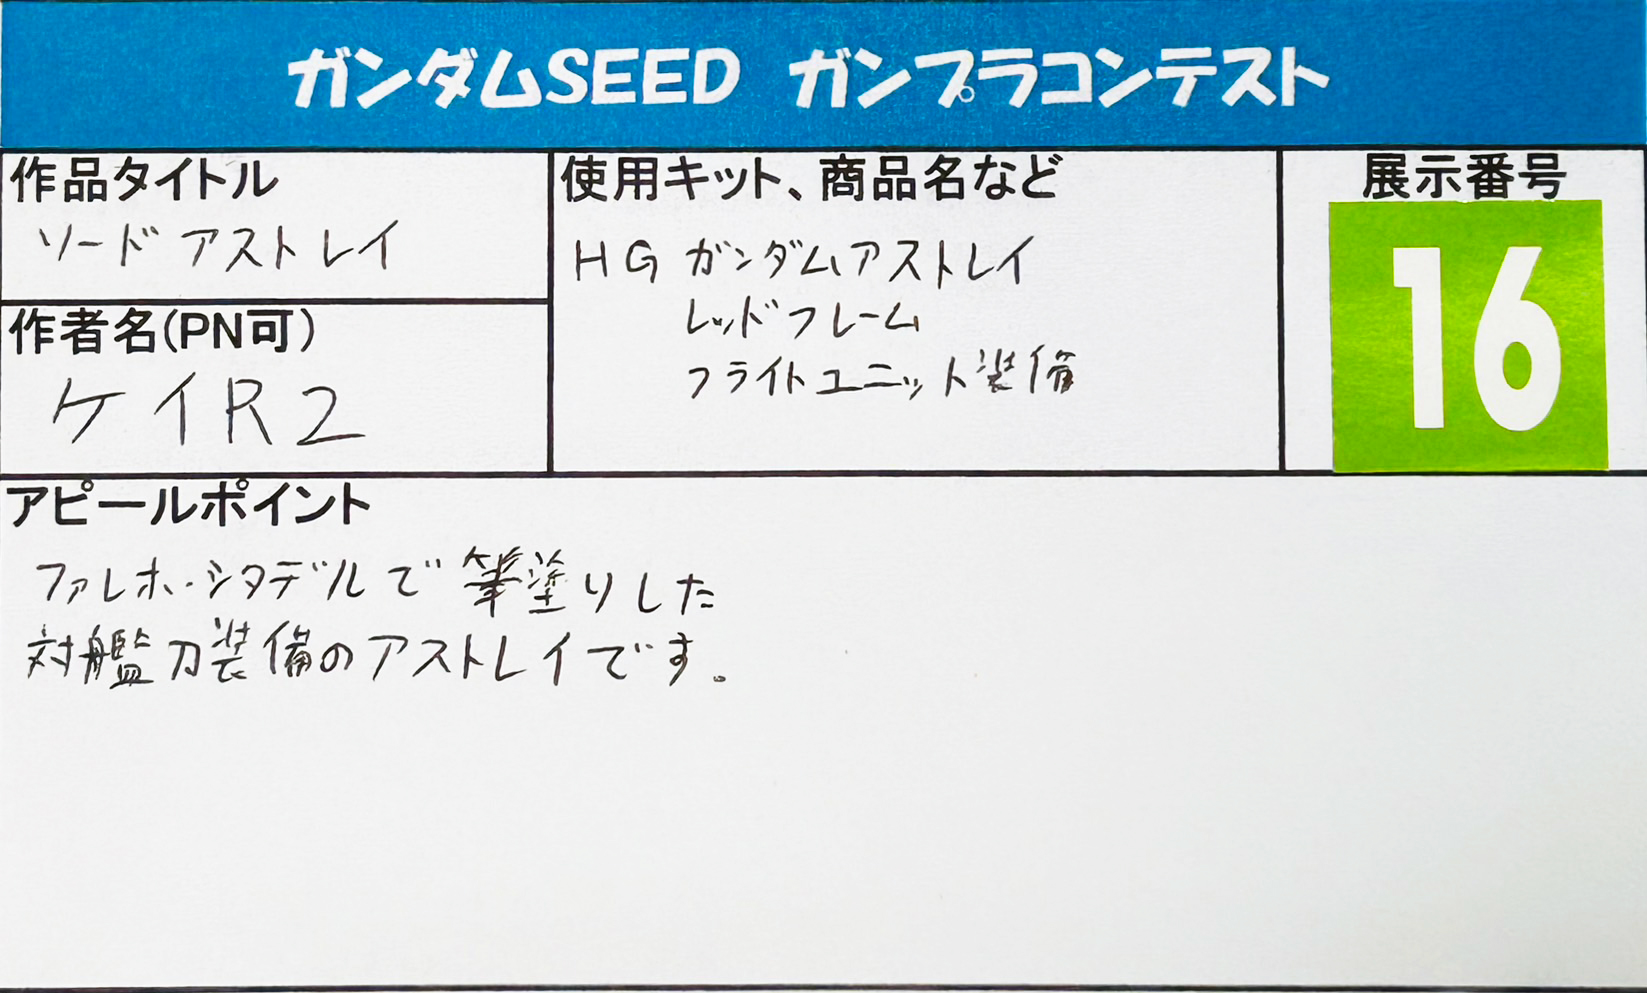 ガンダムSEED ガンプラコンテスト
作品タイトル
ソードアストレイ
作者名(PN可)
ケイR2
使用キット、商品名など
HG ガンダムアストレイ
レッドフレーム
フライトユニット装備
展示番号
16
アピールポイント
ファレホ・シタデルで筆塗りした
対艦刀装備のアストレイです。